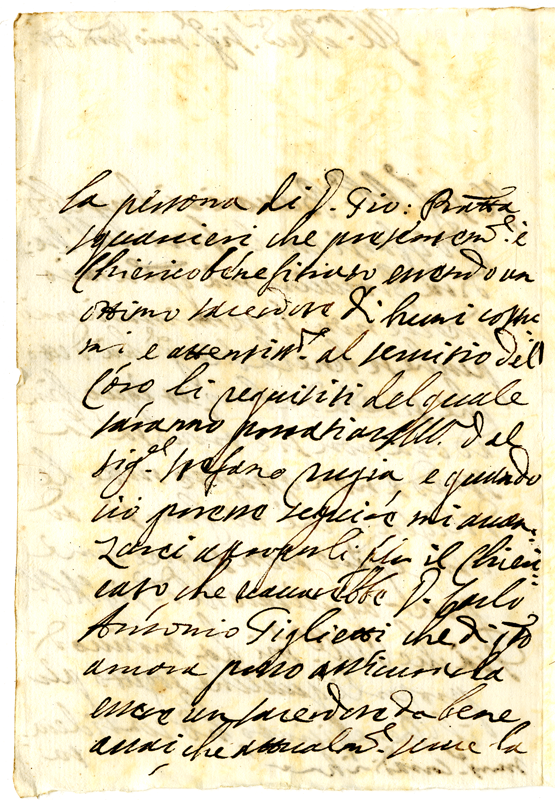 la persona di D. Gio: Batta
squarcieri che presentem.e è
Chierico benefitiato essendo un
ottimo sacerdote di buoni costu
mi e attentiss.o al servitio del
Coro li requisiti del quale
saranno portati a V.S. Ill.ma dal
sig.r stefano rugia e quando
ciò potesse seguire mi avan-
zarei a proporli p il Chieri-
cato che vacarebbe D. Carlo
Antonio Figlietti che di q.to
ancora posso assicurarla
essere un sacerdote da bene
assai che attualm.e serve la